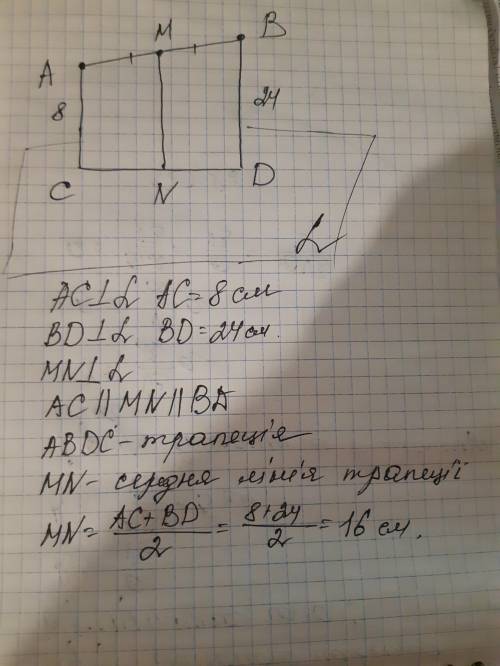 M
B
A
8
24
C
N
D
α
AC⊥α AC=8 см
BD⊥α BD=24 см.
MN⊥α
AC || MN || BD
ABDC - трапеція
MN - середня лінія трапеції
MN = (AC+BD)/2 = (8+24)/2 = 16 см.